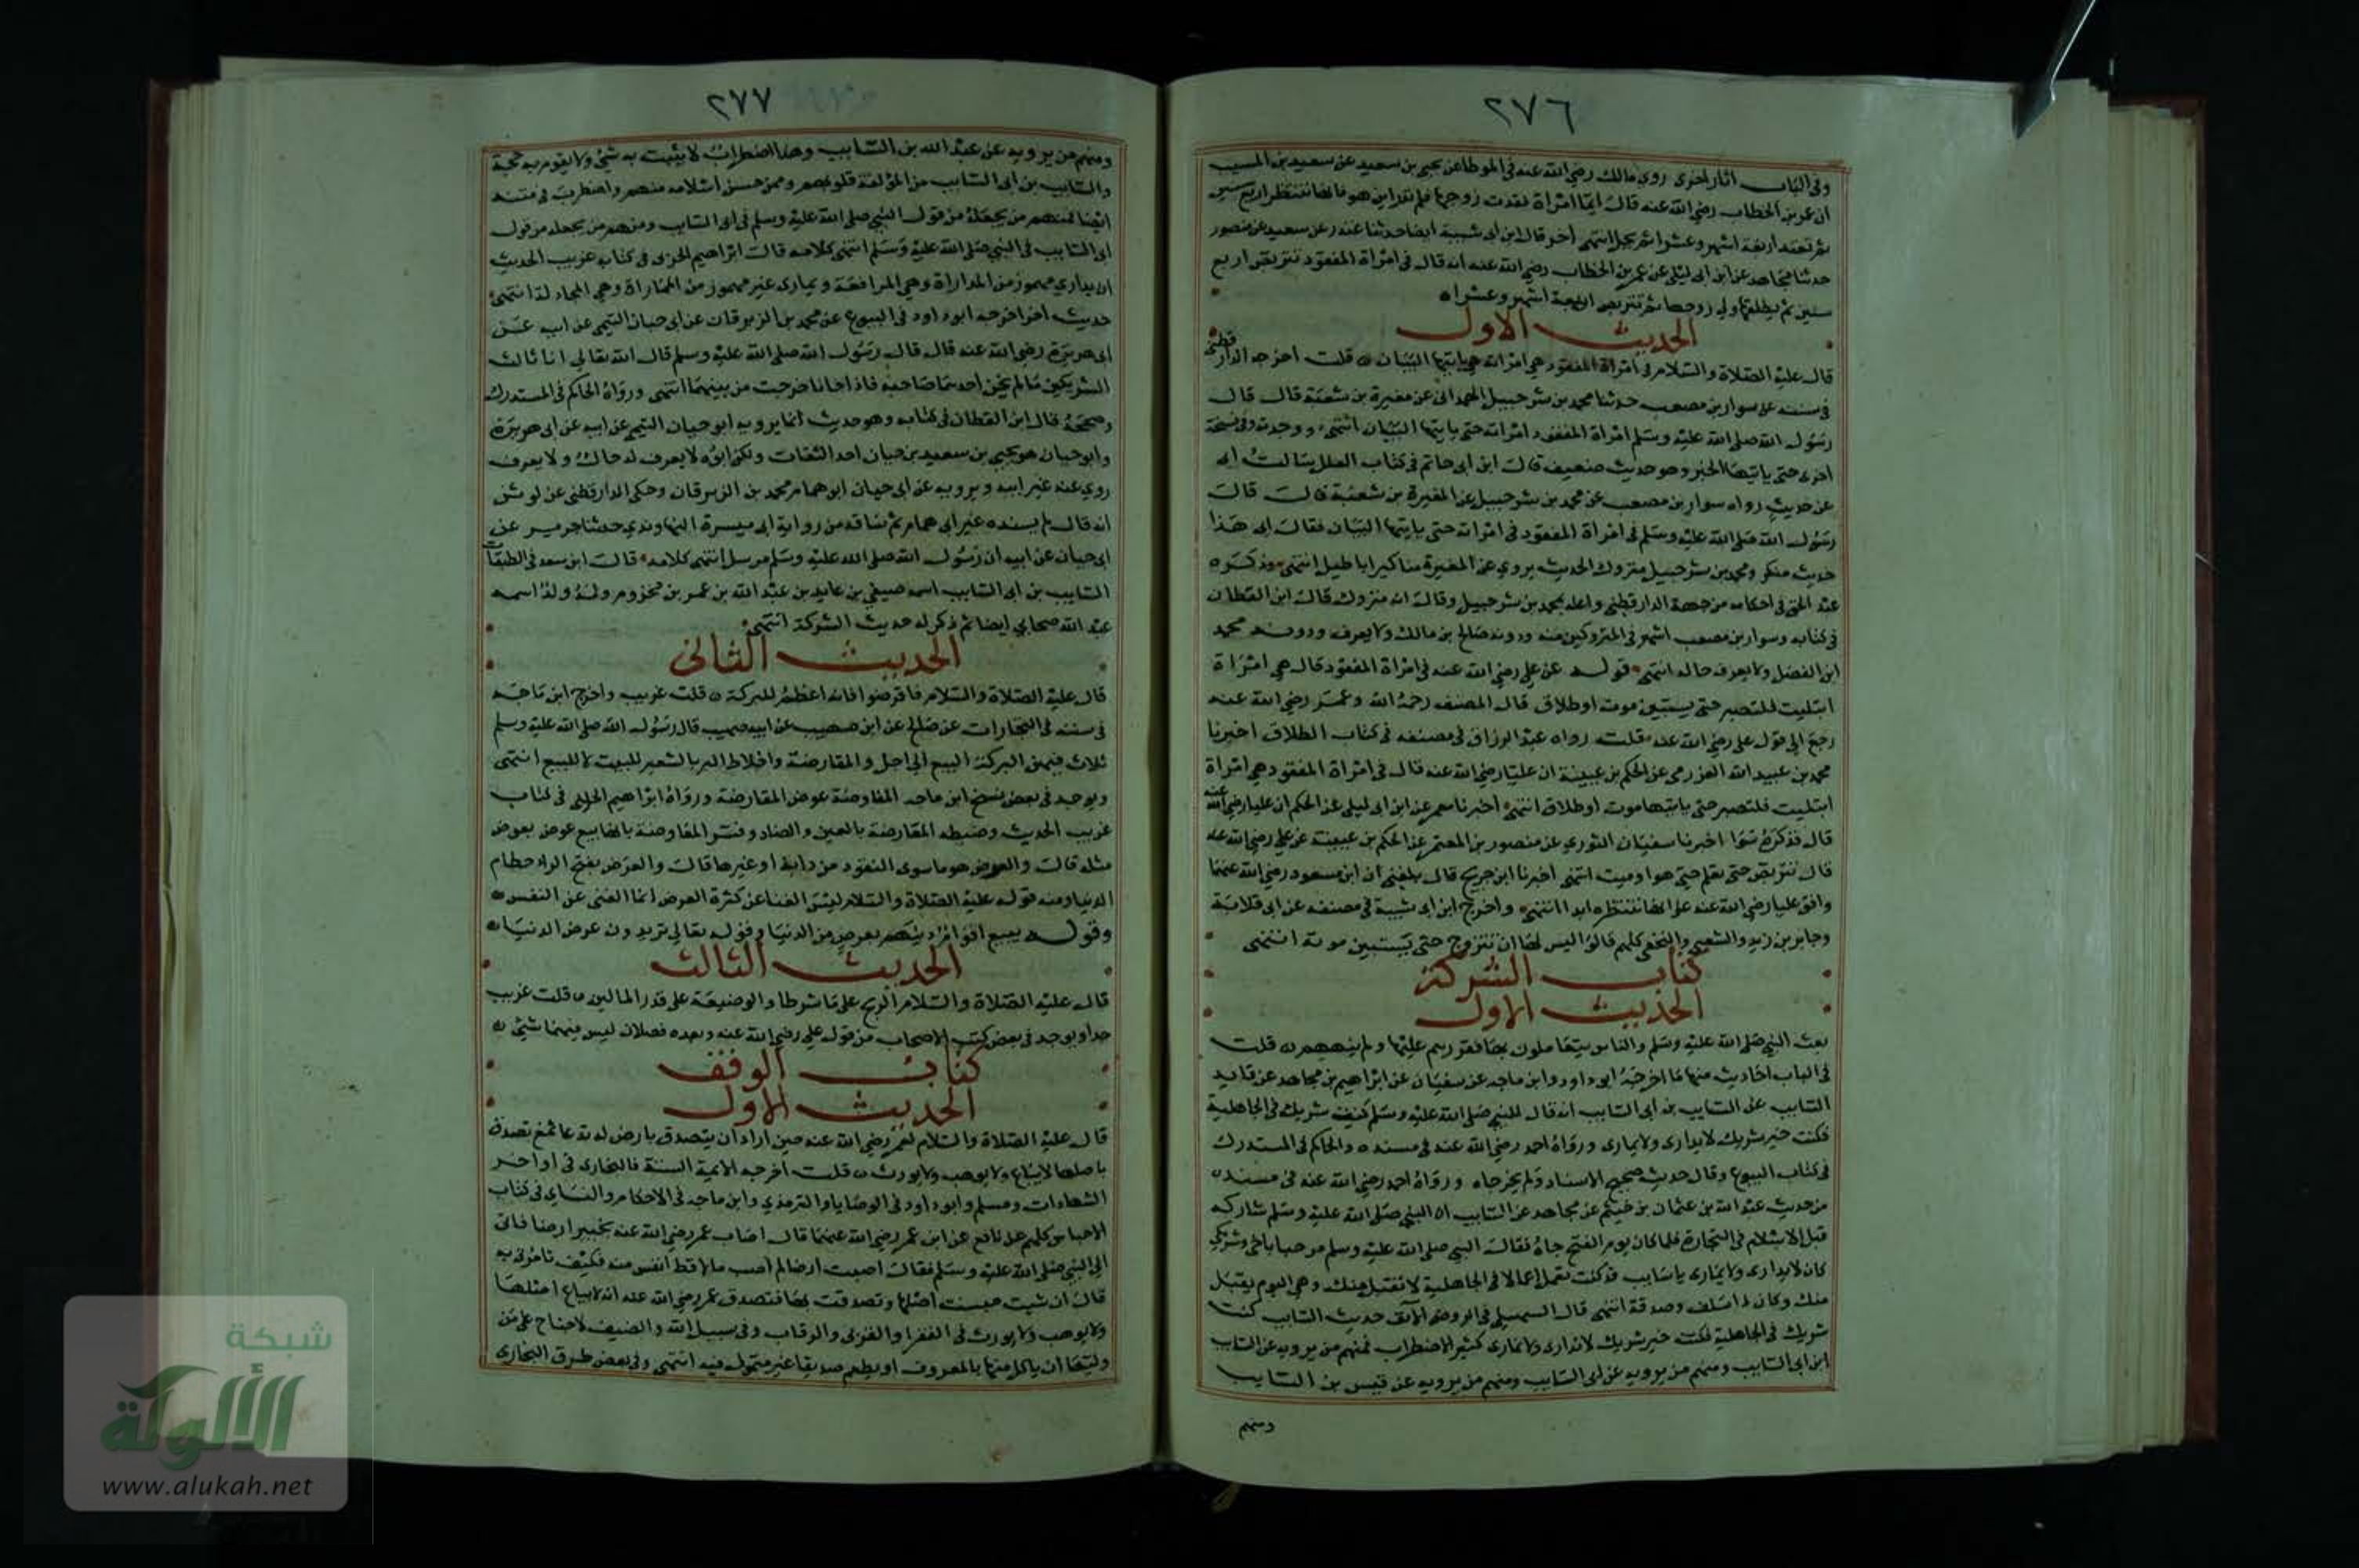 ٢٧٦
وفي الباب آثار اخرى روى مالك رضي الله عنه في الموطا عن يحيى بن سعيد عن سعيد بن المسيب
ان عمر بن الخطاب رضي الله عنه قال ايما امراة فقدت زوجها فلم تدر اين هو فانها تنتظر اربع سنين
ثم تعتد اربعة اشهر وعشرا ثم تحل انتهى اخر قال ابن ابي شيبة ايضا حدثنا غندر عن سعيد عن منصور
حدثنا مجاهد عن ابن ابي ليلى عن عمر بن الخطاب رضي الله عنه انه قال في امراة المفقود تتربص اربع
سنين ثم يطلقها ولي زوجها ثم تتربص اربعة اشهر وعشرا
الحديث الاول
قال عليه الصلاة والسلام في امراة المفقود هي امراته حتى ياتيها البيان قلت اخرجه الدارقطني
في سننه عن سوار بن مصعب حدثنا محمد بن شرحبيل الهمداني عن مغيرة بن شعبة قال قال
رسول الله صلى الله عليه وسلم امراة المفقود امراته حتى ياتيها البيان انتهى ووجدته في نسخة
اخرى حتى ياتيها الخبر وهو حديث ضعيف قال ابن ابي حاتم في كتاب العلل سالت ابي
عن حديث رواه سوار بن مصعب عن محمد بن شرحبيل عن المغيرة بن شعبة قال قال
رسول الله صلى الله عليه وسلم في امراة المفقود في امراته حتى ياتيها البيان فقال ابي هذا
حديث منكر ومحمد بن شرحبيل متروك الحديث يروي عن المغيرة مناكير اباطيل انتهى وذكره
عبد الحق في احكامه من جهة الدارقطني واعله بمحمد بن شرحبيل وقال انه متروك قال ابن القطان
في كتابه وسوار بن مصعب اشهر في المتروكين منه ودونه صالح بن مالك ولا يعرف ودونه محمد
ابن الفضل ولا يعرف حاله انتهى قوله عن علي رضي الله عنه في امراة المفقود قال هي امراة
ابتليت فلتصبر حتى يستبين موت او طلاق قال المصنف رحمه الله وعمر رضي الله عنه
رجع الى قول علي رضي الله عنه قلت رواه عبد الرزاق في مصنفه في كتاب الطلاق اخبرنا
محمد بن عبيد الله العزرمي عن الحكم بن عيينة ان عليا رضي الله عنه قال في امراة المفقود هي امراة
ابتليت فلتصبر حتى ياتيها موت او طلاق انتهى اخبرنا معمر عن ابن ابي ليلى عن الحكم ان عليا رضي الله عنه
قال فذكره سوا اخبرنا سفيان الثوري عن منصور بن المعتمر عن الحكم بن عيينة عن علي رضي الله عنه
قال تتربص حتى تعلم حي هو او ميت انتهى اخبرنا ابن جريج قال بلغني ان ابن مسعود رضي الله عنهما
وافق عليا رضي الله عنه على انها تنتظره ابدا انتهى واخرج ابن ابي شيبة في مصنفه عن ابي قلابة
وجابر بن زيد والشعبي والنخعي كلهم قالوا ليس لها ان تتزوج حتى يستبين موته انتهى
كتاب الشركة
الحديث الاول
بعث النبي صلى الله عليه وسلم والناس يتعاملون بها فقررهم عليها ولم ينههم قلت
في الباب احاديث منها ما اخرجه ابو داود وابن ماجه عن سفيان عن ابراهيم بن مجاهد عن قايد
السايب عن السايب بن ابي السايب انه قال للنبي صلى الله عليه وسلم كنت شريكي في الجاهلية
فكنت خير شريك لا يداري ولا يماري ورواه احمد رضي الله عنه في مسنده والحاكم في المستدرك
في كتاب البيوع وقال حديث صحيح الاسناد ولم يخرجاه ورواه احمد رضي الله عنه في مسنده
من حديث عبد الله بن عثمان بن خيثم عن مجاهد عن السايب ان النبي صلى الله عليه وسلم شاركه
قبل الاسلام في التجارة فلما كان يوم الفتح جاه فقال النبي صلى الله عليه وسلم مرحبا باخي وشريكي
كان لا يداري ولا يماري يا سايب قد كنت تعمل اعمالا في الجاهلية لا تقبل منك وهي اليوم تقبل
منك وكان ذا سلف وصدقة انتهى قال السهيلي في الروض الانف حديث السايب كنت
شريكي في الجاهلية فكنت خير شريك لا تداري ولا تماري كثير الاضطراب فمنهم من يرويه عن السايب
ابن ابي السايب ومنهم من يرويه عن ابي السايب ومنهم من يرويه عن قيس بن السايب
ومنهم
٢٧٧
ومنهم من يرويه عن عبد الله بن السايب وهذا اضطراب لا يثبت به شي ولا يقوم به حجة
والسايب بن ابي السايب من المؤلفة قلوبهم وممن حسن اسلامه منهم واضطرب في متنه
ايضا فمنهم من يجعله من قول النبي صلى الله عليه وسلم في ابي السايب ومنهم من يجعله من قول
ابي السايب في النبي صلى الله عليه وسلم انتهى كلامه قال ابراهيم الحربي في كتابه غريب الحديث
ان يداري مهموز من المداراة وهي المرافعة ويماري غير مهموز من المماراة وهي المجادلة انتهى
حديث اخر اخرجه ابو داود في البيوع عن محمد بن الزبرقان عن ابي حيان التيمي عن ابيه عن
ابي هريرة رضي الله عنه قال قال رسول الله صلى الله عليه وسلم قال الله تعالى انا ثالث
الشريكين ما لم يخن احدهما صاحبه فاذا خانا خرجت من بينهما انتهى ورواه الحاكم في المستدرك
وصححه قال ابن القطان في كتابه وهو حديث انما يرويه ابو حيان التيمي عن ابيه عن ابي هريرة
وابو حيان هو يحيى بن سعيد بن حيان احد الثقات ولكن ابوه لا يعرف له حال ولا يعرف
روي عنه غير ابيه ويرويه عن ابي حيان ابو همام محمد بن الزبرقان وحكى الدارقطني عن لوين
انه قال لم يسنده غير ابي همام ثم ساقه من رواية ابي ميسرة النهاوندي حدثنا جرير عن
ابي حيان عن ابيه ان رسول الله صلى الله عليه وسلم مرسل انتهى كلامه قال ابن سعد في الطبقات
السايب بن ابي السايب اسمه صيفي بن عايد بن عبد الله بن عمر بن مخزوم وله ولد اسمه
عبد الله صحابي ايضا ثم ذكر له حديث الشركة انتهى
الحديث الثاني
قال عليه الصلاة والسلام فاوضوا فانه اعظم للبركة قلت غريب واخرج ابن ماجه
في سننه في التجارات عن صالح عن ابن صهيب عن ابيه صهيب قال رسول الله صلى الله عليه وسلم
ثلاث فيهن البركة البيع الى اجل والمقارضة واخلاط البر بالشعير للبيت لا للبيع انتهى
ويوجد في بعض نسخ ابن ماجه المفاوضة عوض المقارضة ورواه ابراهيم الحربي في كتاب
غريب الحديث وضبطه المعارضة بالعين والضاد وفسر المفاوضة بانها بيع عرض بعرض
مثله قال والعرض هو ما سوى النقود من دابة او غيرها قال والعرض بفتح الراء حطام
الدنيا ومنه قوله عليه الصلاة والسلام ليس الغنا عن كثرة العرض انما الغنى عن النفس
وقوله يبيع اقوام دينهم بعرض من الدنيا وقوله تعالى تريدون عرض الدنيا
الحديث الثالث
قال عليه الصلاة والسلام الربح على ما شرطا والوضيعة على قدر المالين قلت غريب
جدا ويوجد في بعض كتب الاصحاب من قول علي رضي الله عنه وبعده فصلان ليس فيهما شي
كتاب الوقف
الحديث الاول
قال عليه الصلاة والسلام لعمر رضي الله عنه حين اراد ان يتصدق بارض له تدعا ثمغ تصدق
باصلها لا يباع ولا يوهب ولا يورث قلت اخرجه الايمة الستة فالبخاري في اواخر
الشهادات ومسلم وابو داود في الوصايا والترمذي وابن ماجه في الاحكام والنساي في كتاب
الاحباس كلهم عن نافع عن ابن عمر رضي الله عنهما قال اصاب عمر رضي الله عنه بخيبر ارضا فاتى
الى النبي صلى الله عليه وسلم فقال اصبت ارضا لم اصب مالا قط انفس منه فكيف تامرني به
قال ان شيت حبست اصلها وتصدقت بها فتصدق عمر رضي الله عنه انه لا يباع اصلها
ولا يوهب ولا يورث في الفقرا والقربى والرقاب وفي سبيل الله والضيف لا جناح على من
وليها ان ياكل منها بالمعروف او يطعم صديقا غير متمول فيه انتهى وفي بعض طرق البخاري
شبكة
الألوكة
www.alukah.net